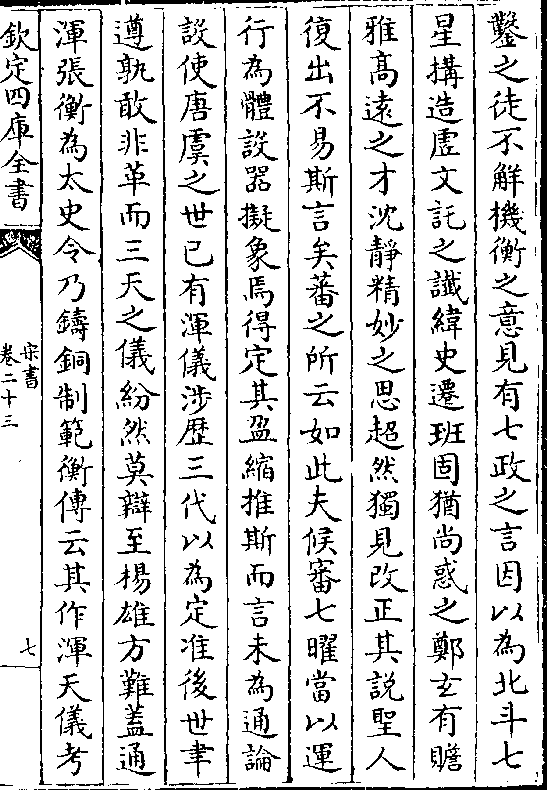 鑿之徒不解機衡之意見有七政之言因以為北斗七
星搆造虛文託之䜟緯史遷班固猶尚惑之鄭玄有贍
雅高遠之才沈靜精妙之思超然獨見改正其說聖人
復出不易斯言矣蕃之所云如此夫候審七曜當以運
行為體設器擬象焉得定其盈縮推斯而言未為通論
設使唐虞之世已有渾儀涉歷三代以為定准後世聿
遵孰敢非革而三天之儀紛然莫辯至楊雄方難蓋通
渾張衡為太史令乃鑄銅制範衡傳云其作渾天儀考
欽定四庫全書
宋書
卷二十三
七